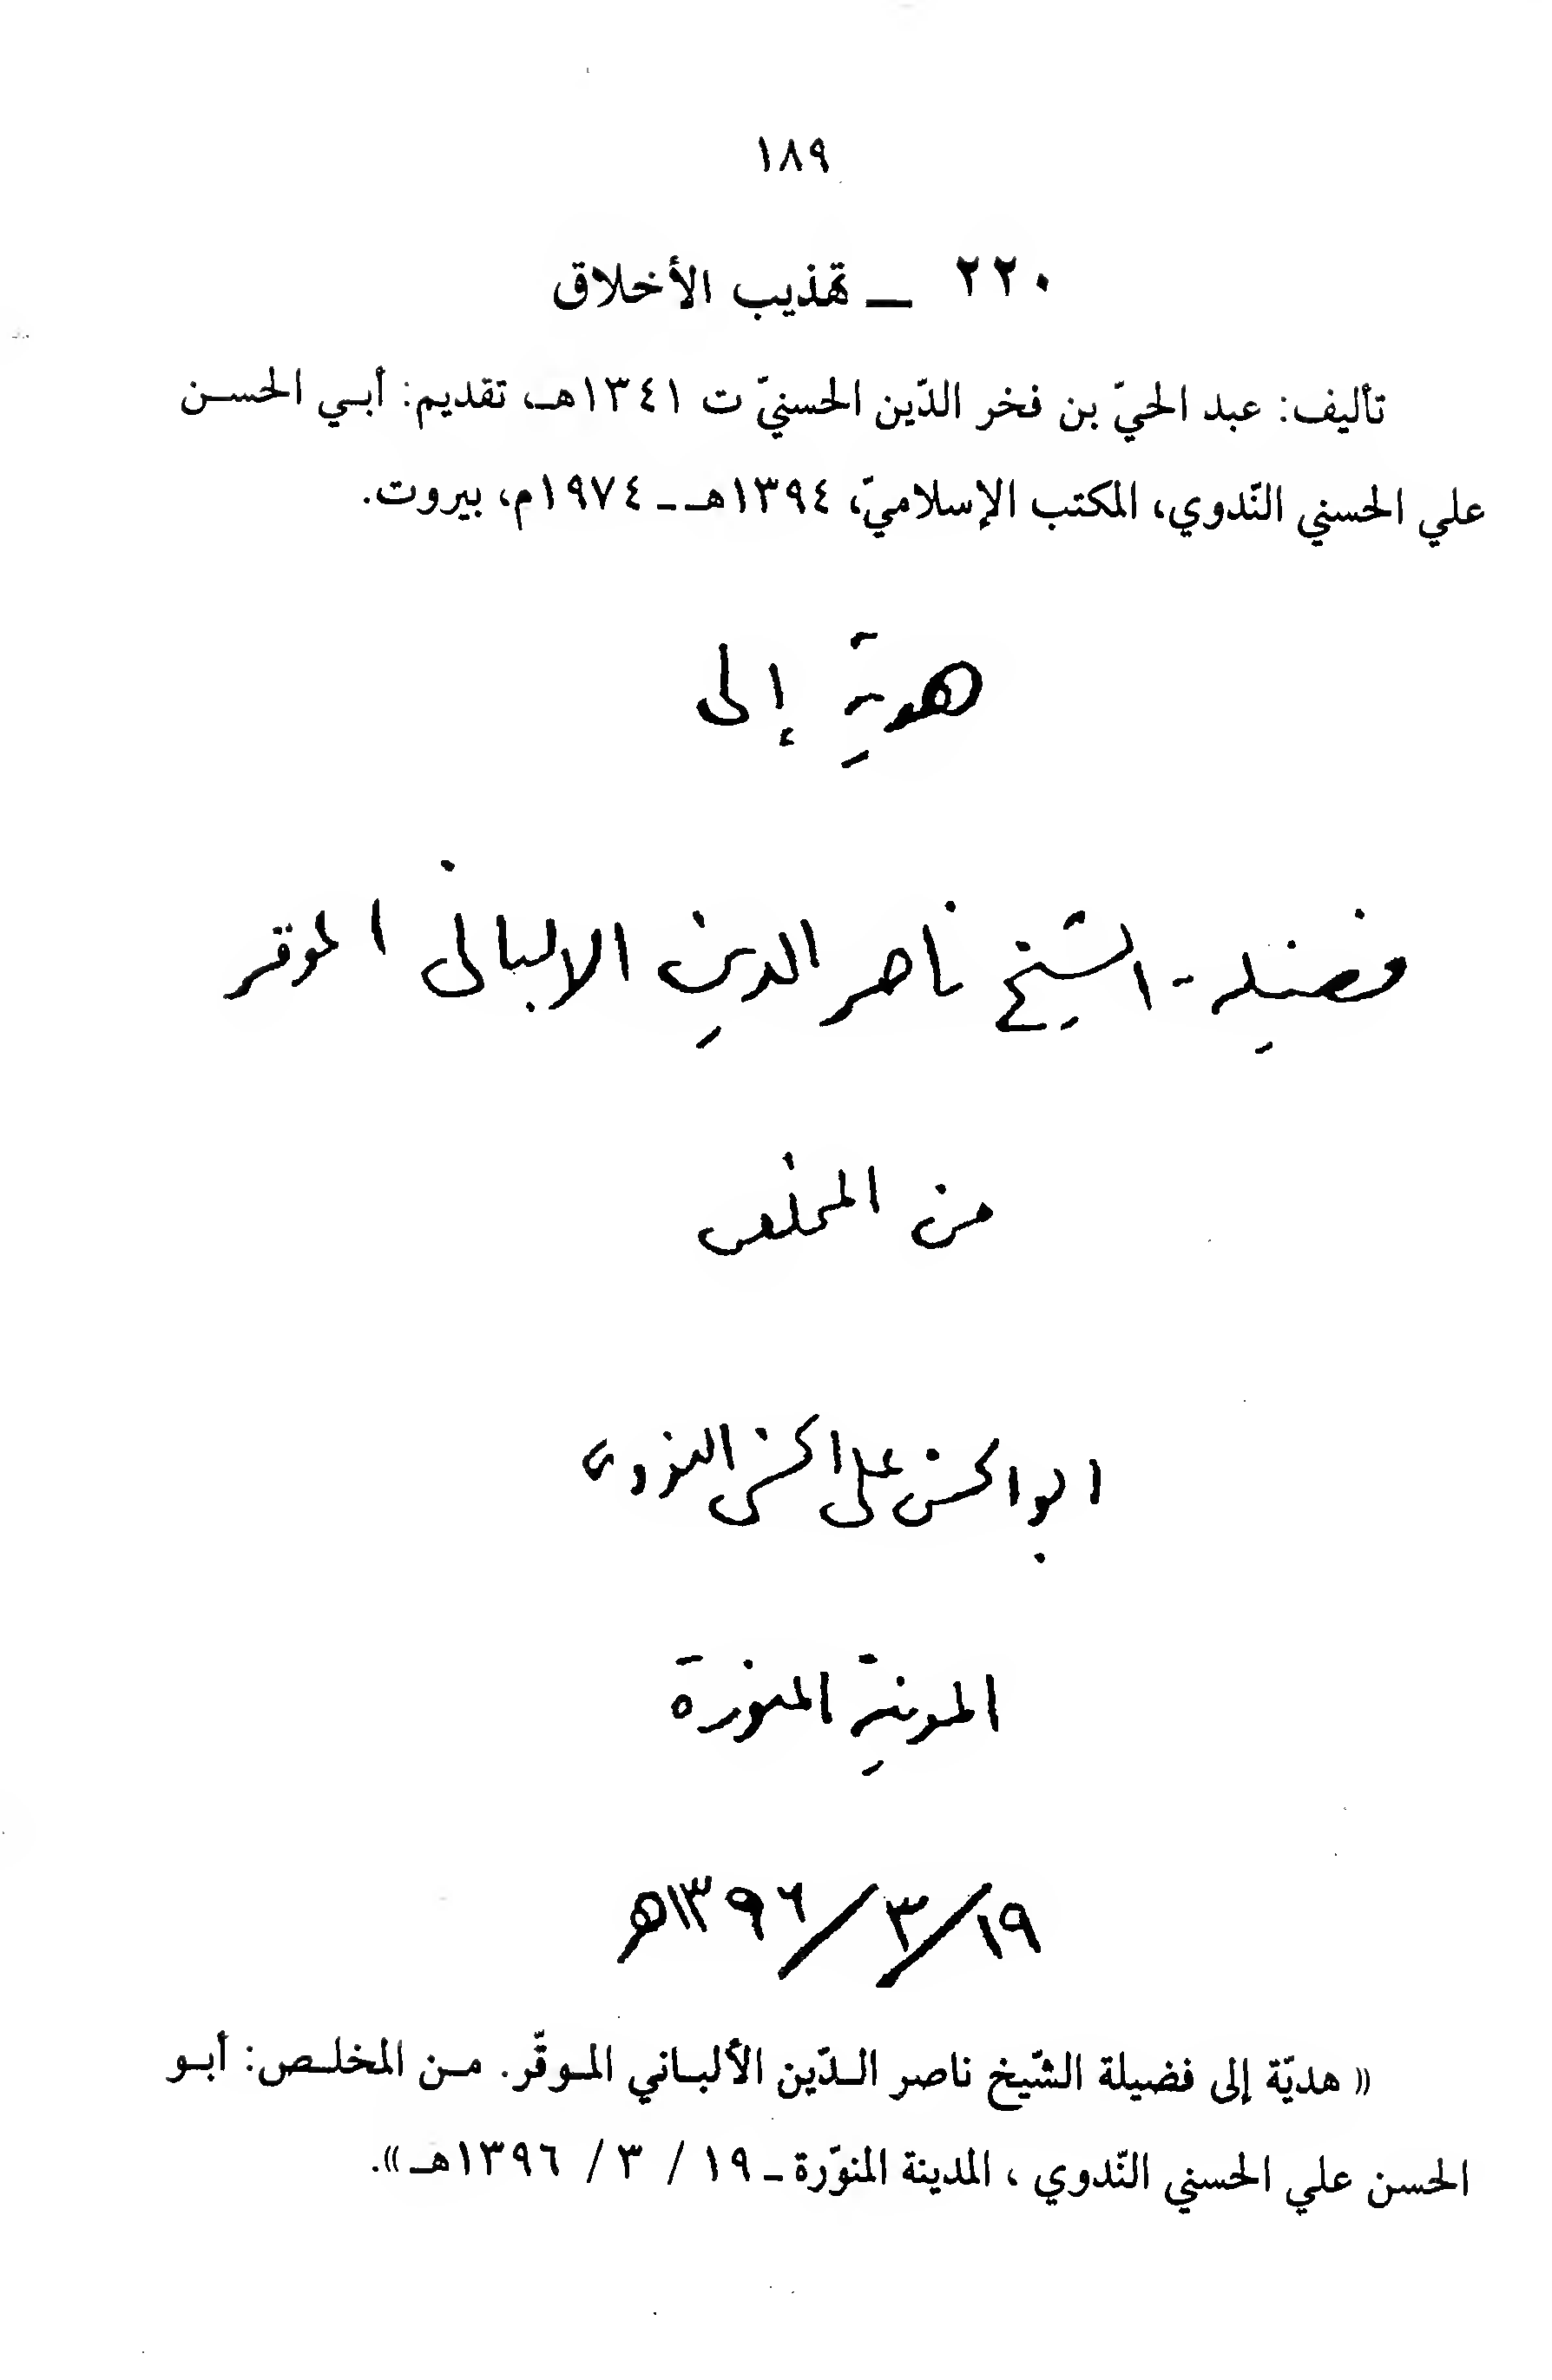 ١٨٩
٢٢٠ ــ تهذيب الأخلاق
تأليف: عبد الحيّ بن فخر الدّين الحسنيّ ت ١٣٤١هـ، تقديم: أبي الحسن
علي الحسني النّدوي، المكتب الإسلاميّ، ١٣٩٤هـ ـ ١٩٧٤م، بيروت.
هدية إلى
فضيلة الشيخ ناصر الدين الالباني الموقر
من المخلص
ابو الحسن علي الحسني الندوي
المدينة المنورة
١٩/٣/١٣٩٦هـ
« هديّة إلى فضيلة الشّيخ ناصر الدّين الألباني الموقّر. من المخلص: أبو
الحسن علي الحسني النّدوي ، المدينة المنوّرة ـ ١٩ / ٣ / ١٣٩٦هـ ».